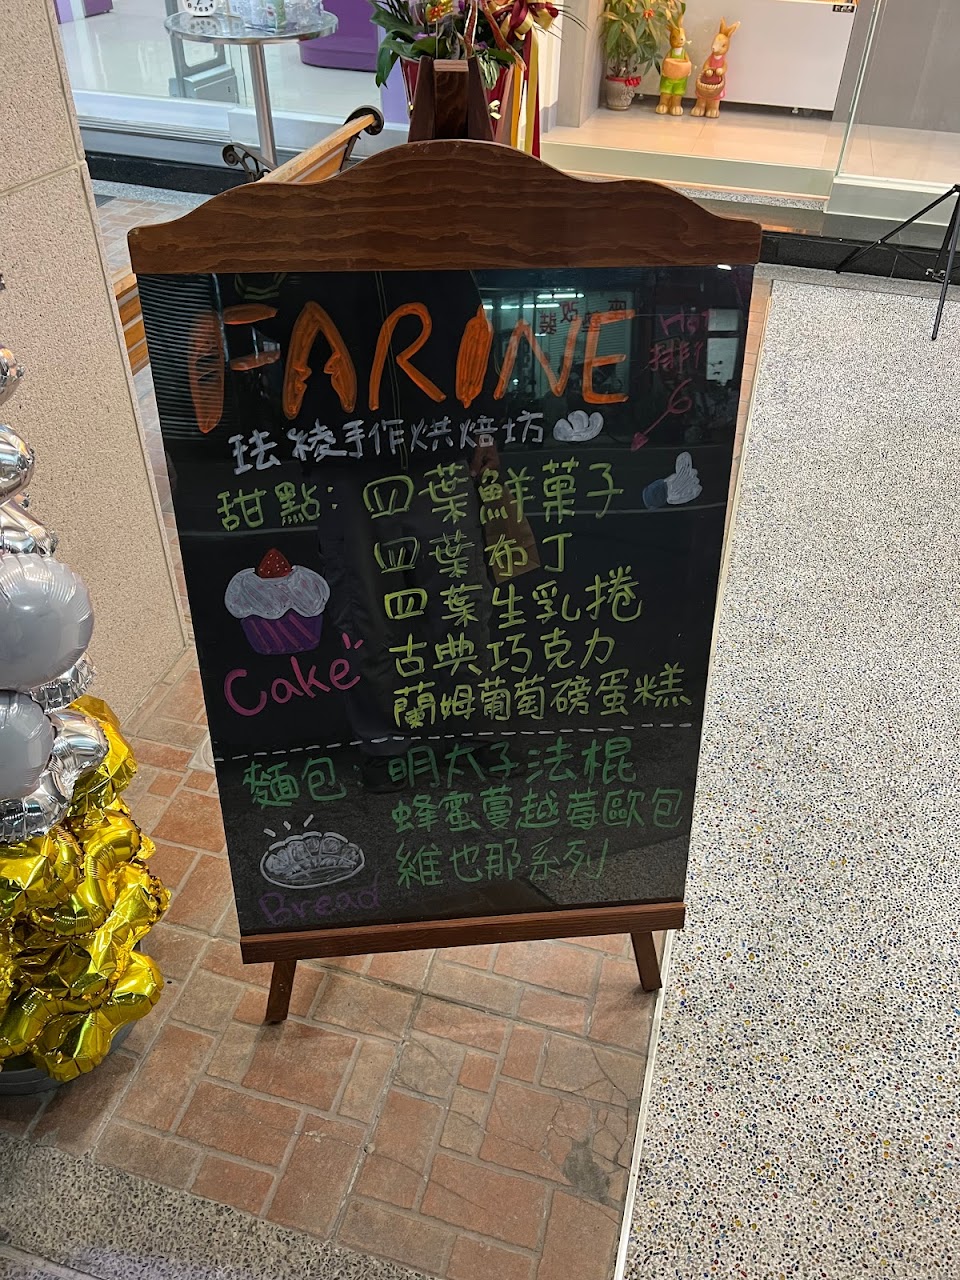 FARINE
Hot
排行
琺綾手作烘焙坊
甜點：四葉鮮菓子
四葉布丁
四葉生乳捲
古典巧克力
蘭姆葡萄磅蛋糕
Cake
麵包 明太子法棍
蜂蜜蔓越莓歐包
維也那系列
Bread